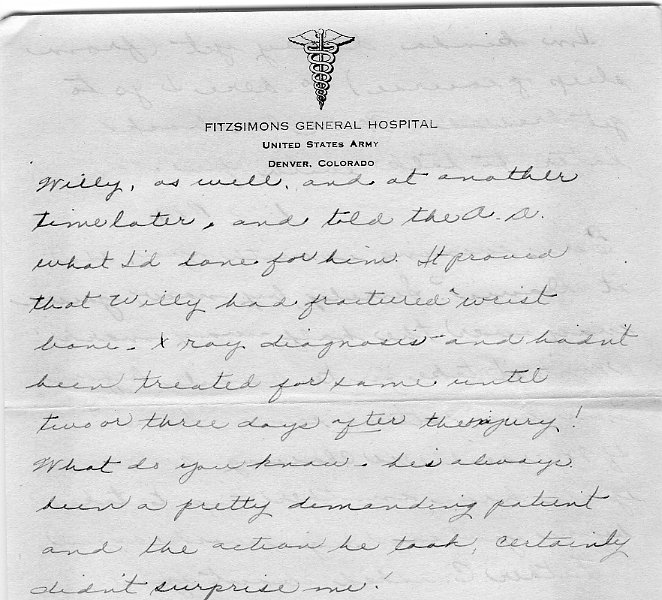 FITZSIMONS GENERAL HOSPITAL
UNITED STATES ARMY
DENVER, COLORADO
Willy, as well, and at another
time later, and told the A. D.
what I'd done for him. It proved
that Willy had fractured wrist
bone - X ray diagnosis - and hadn't
been treated for same until
two or three days after the injury!
What do you know. he's always
been a pretty demanding patient
and the action he took, certainly
didn't surprise me!